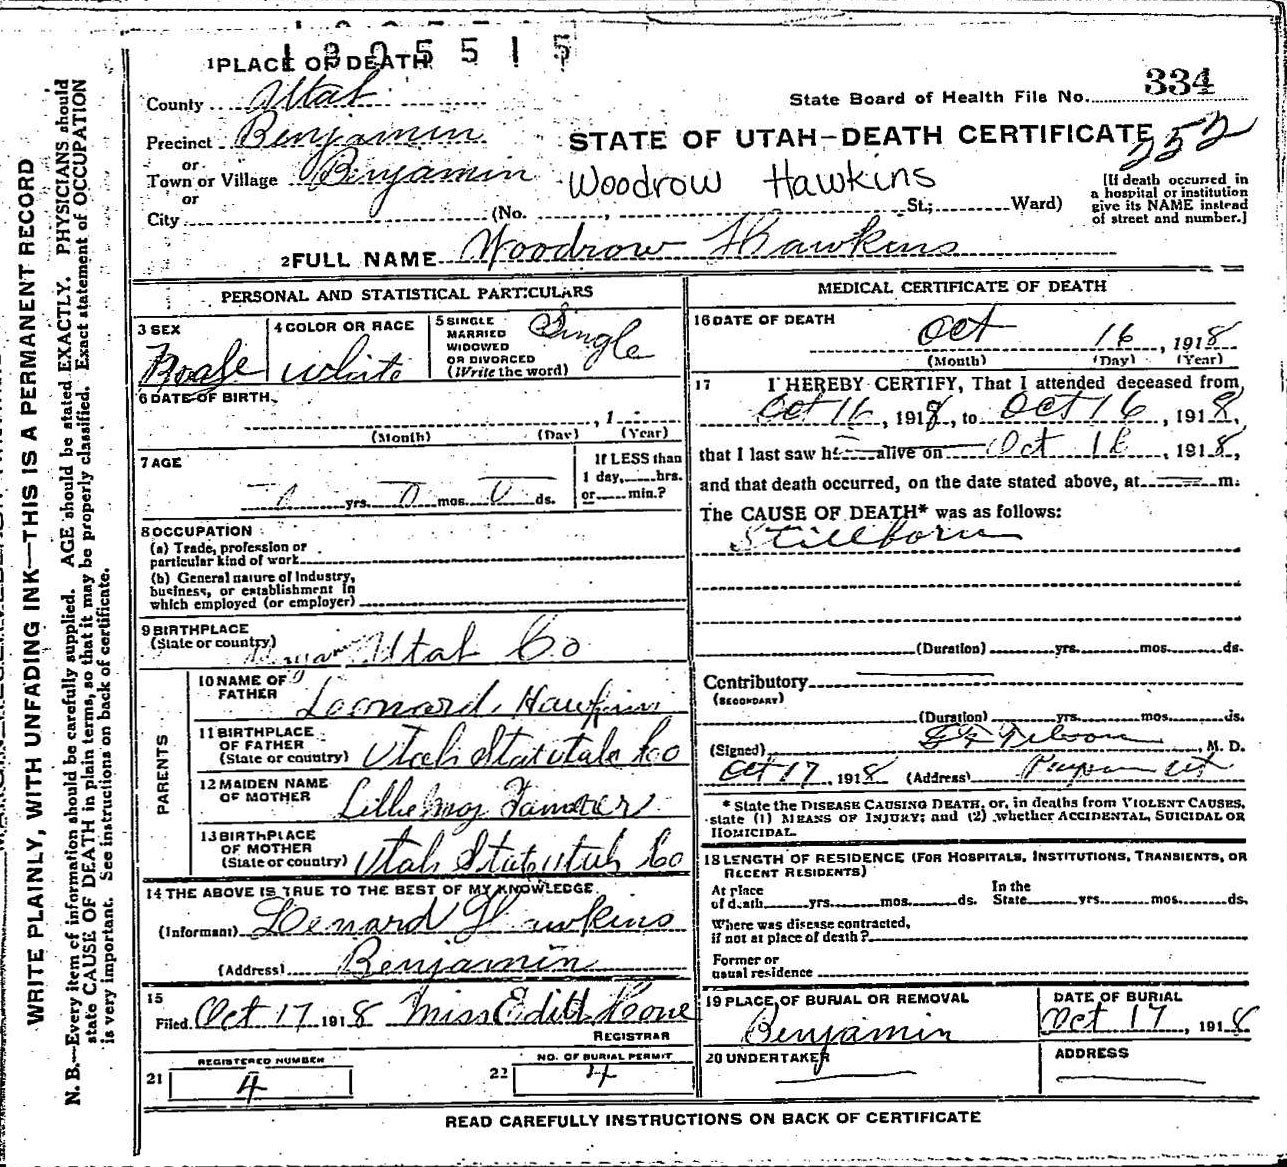 1905515
1 PLACE OF DEATH
334
State Board of Health File No.
County Utah
Precinct Benjamin
STATE OF UTAH—DEATH CERTIFICATE
252
or
Town or Village Benjamin
Woodrow Hawkins
or
City (No. , St.; Ward)
[If death occurred in
a hospital or institution
give its NAME instead
of street and number.]
2 FULL NAME Woodrow Hawkins
PERSONAL AND STATISTICAL PARTICULARS
3 SEX
Male
4 COLOR OR RACE
white
5 SINGLE
MARRIED
WIDOWED
OR DIVORCED
(Write the word)
Single
6 DATE OF BIRTH
, 1
(Month) (Day) (Year)
7 AGE
0 yrs. 0 mos. 0 ds.
If LESS than
1 day, hrs.
or min.?
8 OCCUPATION
(a) Trade, profession or
particular kind of work
(b) General nature of Industry,
business, or establishment in
which employed (or employer)
9 BIRTHPLACE
(State or country)
Utah Co
PARENTS
10 NAME OF
FATHER
Leonard Hawkins
11 BIRTHPLACE
OF FATHER
(State or country) Utah Stat Utah Co
12 MAIDEN NAME
OF MOTHER
13 BIRTHPLACE
OF MOTHER
(State or country) Utah Stat Utah Co
14 THE ABOVE IS TRUE TO THE BEST OF MY KNOWLEDGE
(Informant) Lenard Hawkins
(Address) Benjamin
15
Filed Oct 17 1918 Miss Edith Hone
REGISTRAR
REGISTERED NUMBER
21 4
NO. OF BURIAL PERMIT
22 4
MEDICAL CERTIFICATE OF DEATH
16 DATE OF DEATH
Oct 16, 1918
(Month) (Day) (Year)
17 I HEREBY CERTIFY, That I attended deceased from
Oct 16, 1918, to Oct 16, 1918,
that I last saw h alive on Oct 16, 1918,
and that death occurred, on the date stated above, at m.
The CAUSE OF DEATH* was as follows:
Stillborn
(Duration) yrs. mos. ds.
Contributory
(SECONDARY)
(Duration) yrs. mos. ds.
(Signed) , M. D.
Oct 17, 1918 (Address)
* State the DISEASE CAUSING DEATH, or, in deaths from VIOLENT CAUSES,
state (1) MEANS OF INJURY; and (2) whether ACCIDENTAL, SUICIDAL OR
HOMICIDAL.
18 LENGTH OF RESIDENCE (FOR HOSPITALS, INSTITUTIONS, TRANSIENTS, OR
RECENT RESIDENTS)
At place
of death yrs. mos. ds.
In the
State yrs. mos. ds.
Where was disease contracted,
if not at place of death?
Former or
usual residence
19 PLACE OF BURIAL OR REMOVAL
Benjamin
DATE OF BURIAL
Oct 17, 1918
20 UNDERTAKER
ADDRESS
READ CAREFULLY INSTRUCTIONS ON BACK OF CERTIFICATE
WRITE PLAINLY, WITH UNFADING INK—THIS IS A PERMANENT RECORD
N. B.—Every item of information should be carefully supplied. AGE should be stated EXACTLY. PHYSICIANS should
state CAUSE OF DEATH in plain terms, so that it may be properly classified. Exact statement of OCCUPATION
is very important. See instructions on back of certificate.